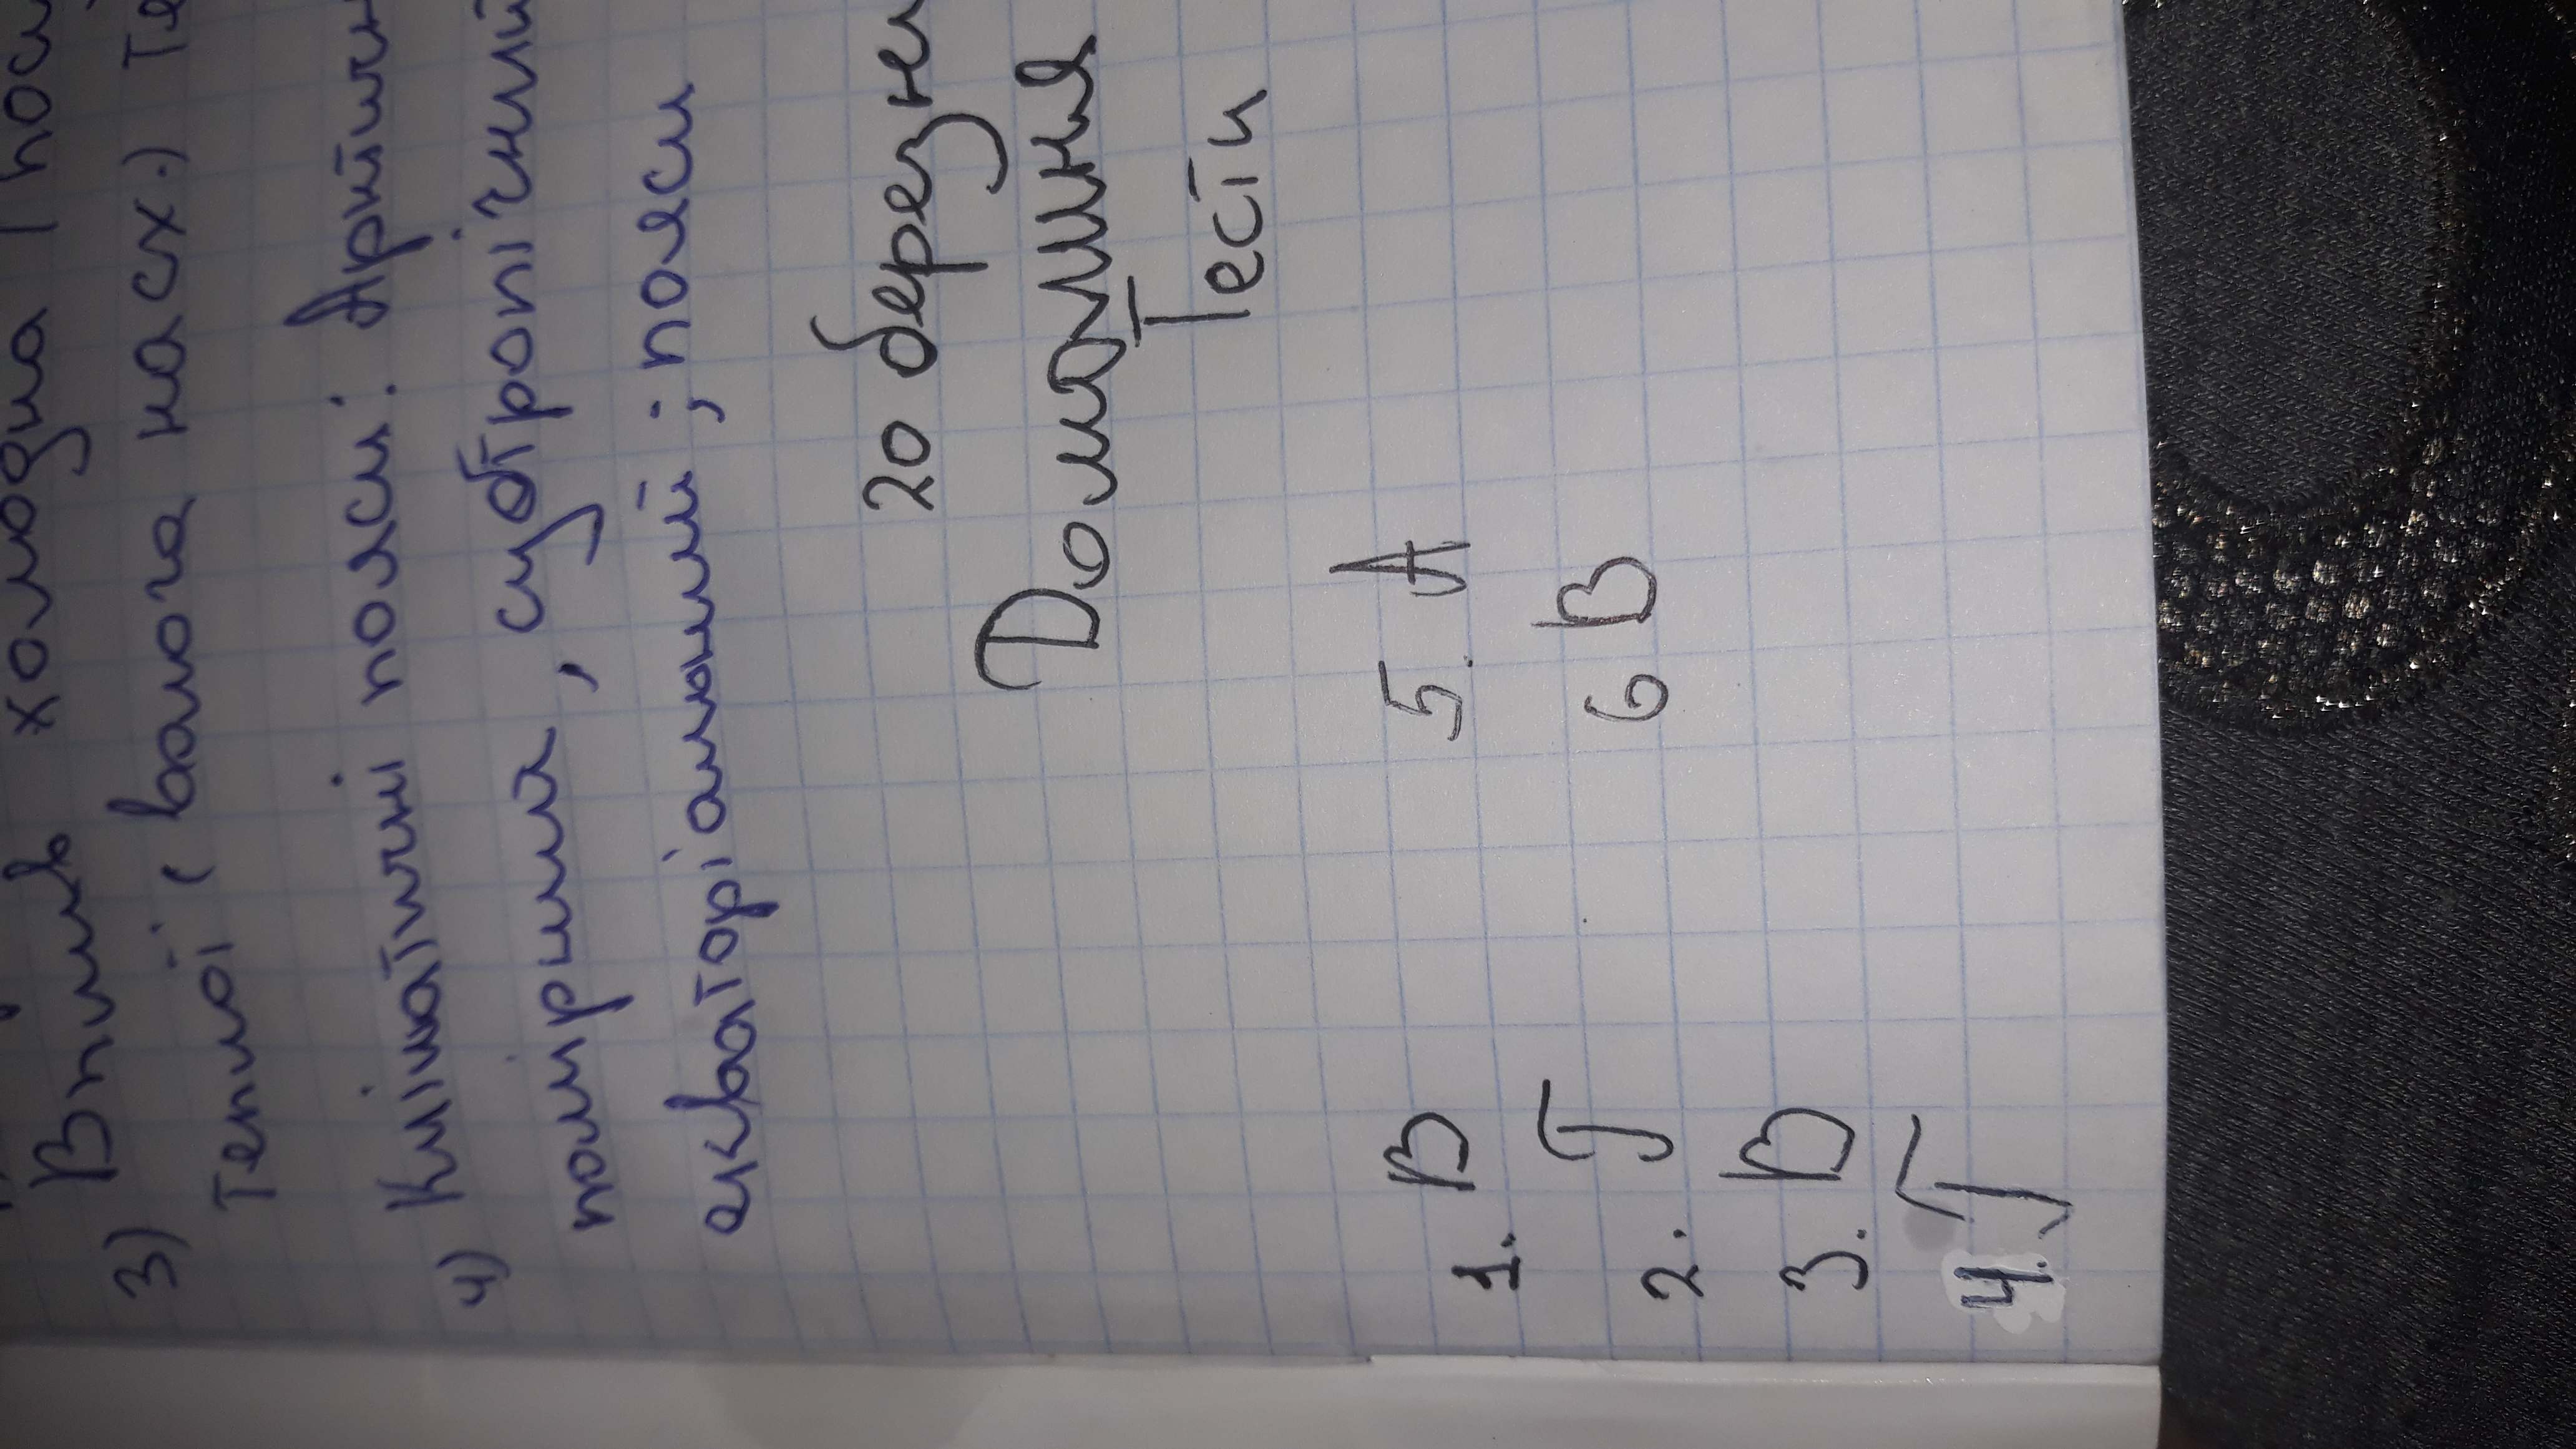 3) Вплив холодна
Теплої (волога на сх.)
4) Кліматичні пояси: Арктичн
помірний, субтропічний
екваторіальний; пояси
20 березн
Домашня
Тести
1. В 5. А
2. Г 6 В
3. В
4. Г